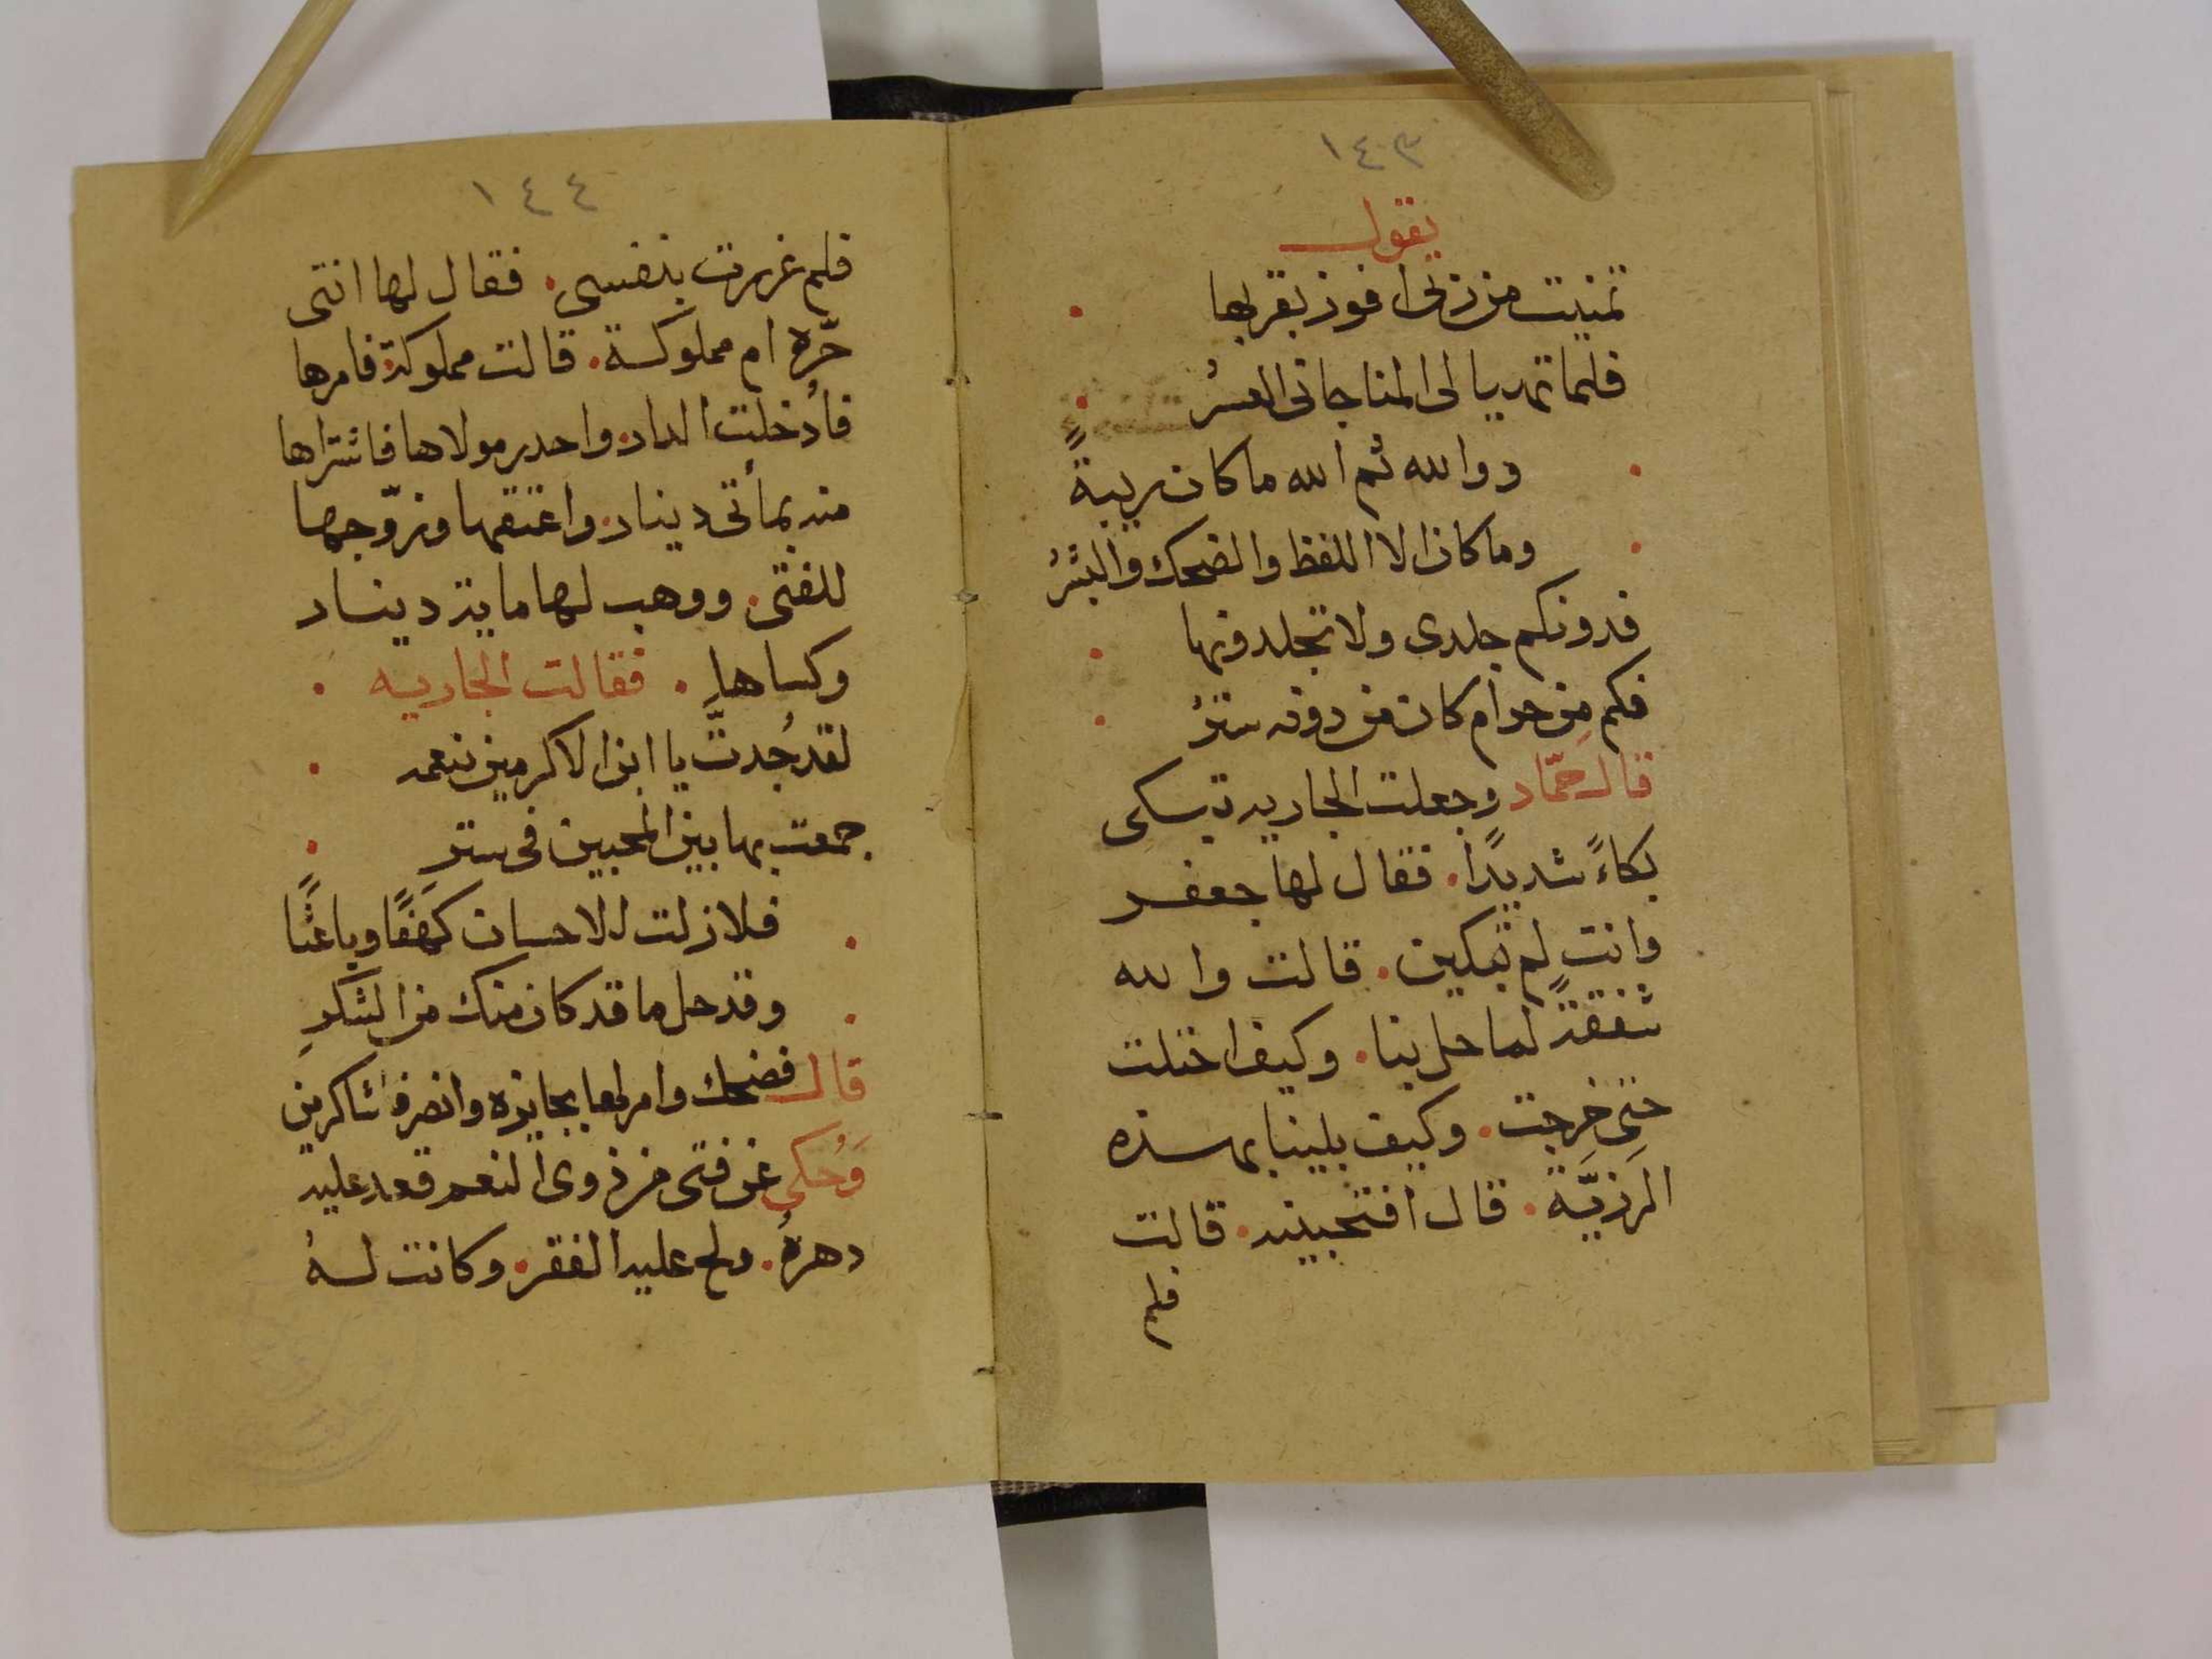 ١٤٣
يقول
تمنيت من ربى افوز بقربها
فلما تهديا لى المنا جانى العسرُ
ووالله ثم الله ما كان ريبةً
وما كان الا اللفظ والضحك والبشرُ
فدونكم جلدى ولا تجلدونها
فكم مِن حرام كان من دونه سترُ
قال حمّاد وجعلت الجاريه تبكى
بكاءً شديدًا. فقال لها جعفر
وانتِ لم تبكين. قالت والله
شفقةً لما حل بنا. وكيف اختلت
حتى خرجت. وكيف بلينا بهذه
الرزيَّة. قال افتحبينه. قالت
فلم
١٤٤
فلم غررت بنفسى. فقال لها انتى
حّره ام مملوكة. قالت مملوكة. فامرها
فأدخلت الدار. واحدر مولاها فاشتراها
منه بمأتى دينار. واعتقها وزوّجها
للفتى. ووهب لهما مايتر دينار
وكساها. فقالت الجاريه
لقد جُدتَّ يا ابن الاكرمين بنعمه
جمعت بها بين المحبين فى ستر
فلا زلت للاحسان كهَفًا وباعثًا
وقد حل ما قد كان منك من الشكرِ
قال فضحك وامر لهما بجايزه وانصرفا شاكرين
وَحُكى عن فتى من ذوى النعم قعد عليه
دهرهُ. ولح عليه الفقر. وكانت لهُ